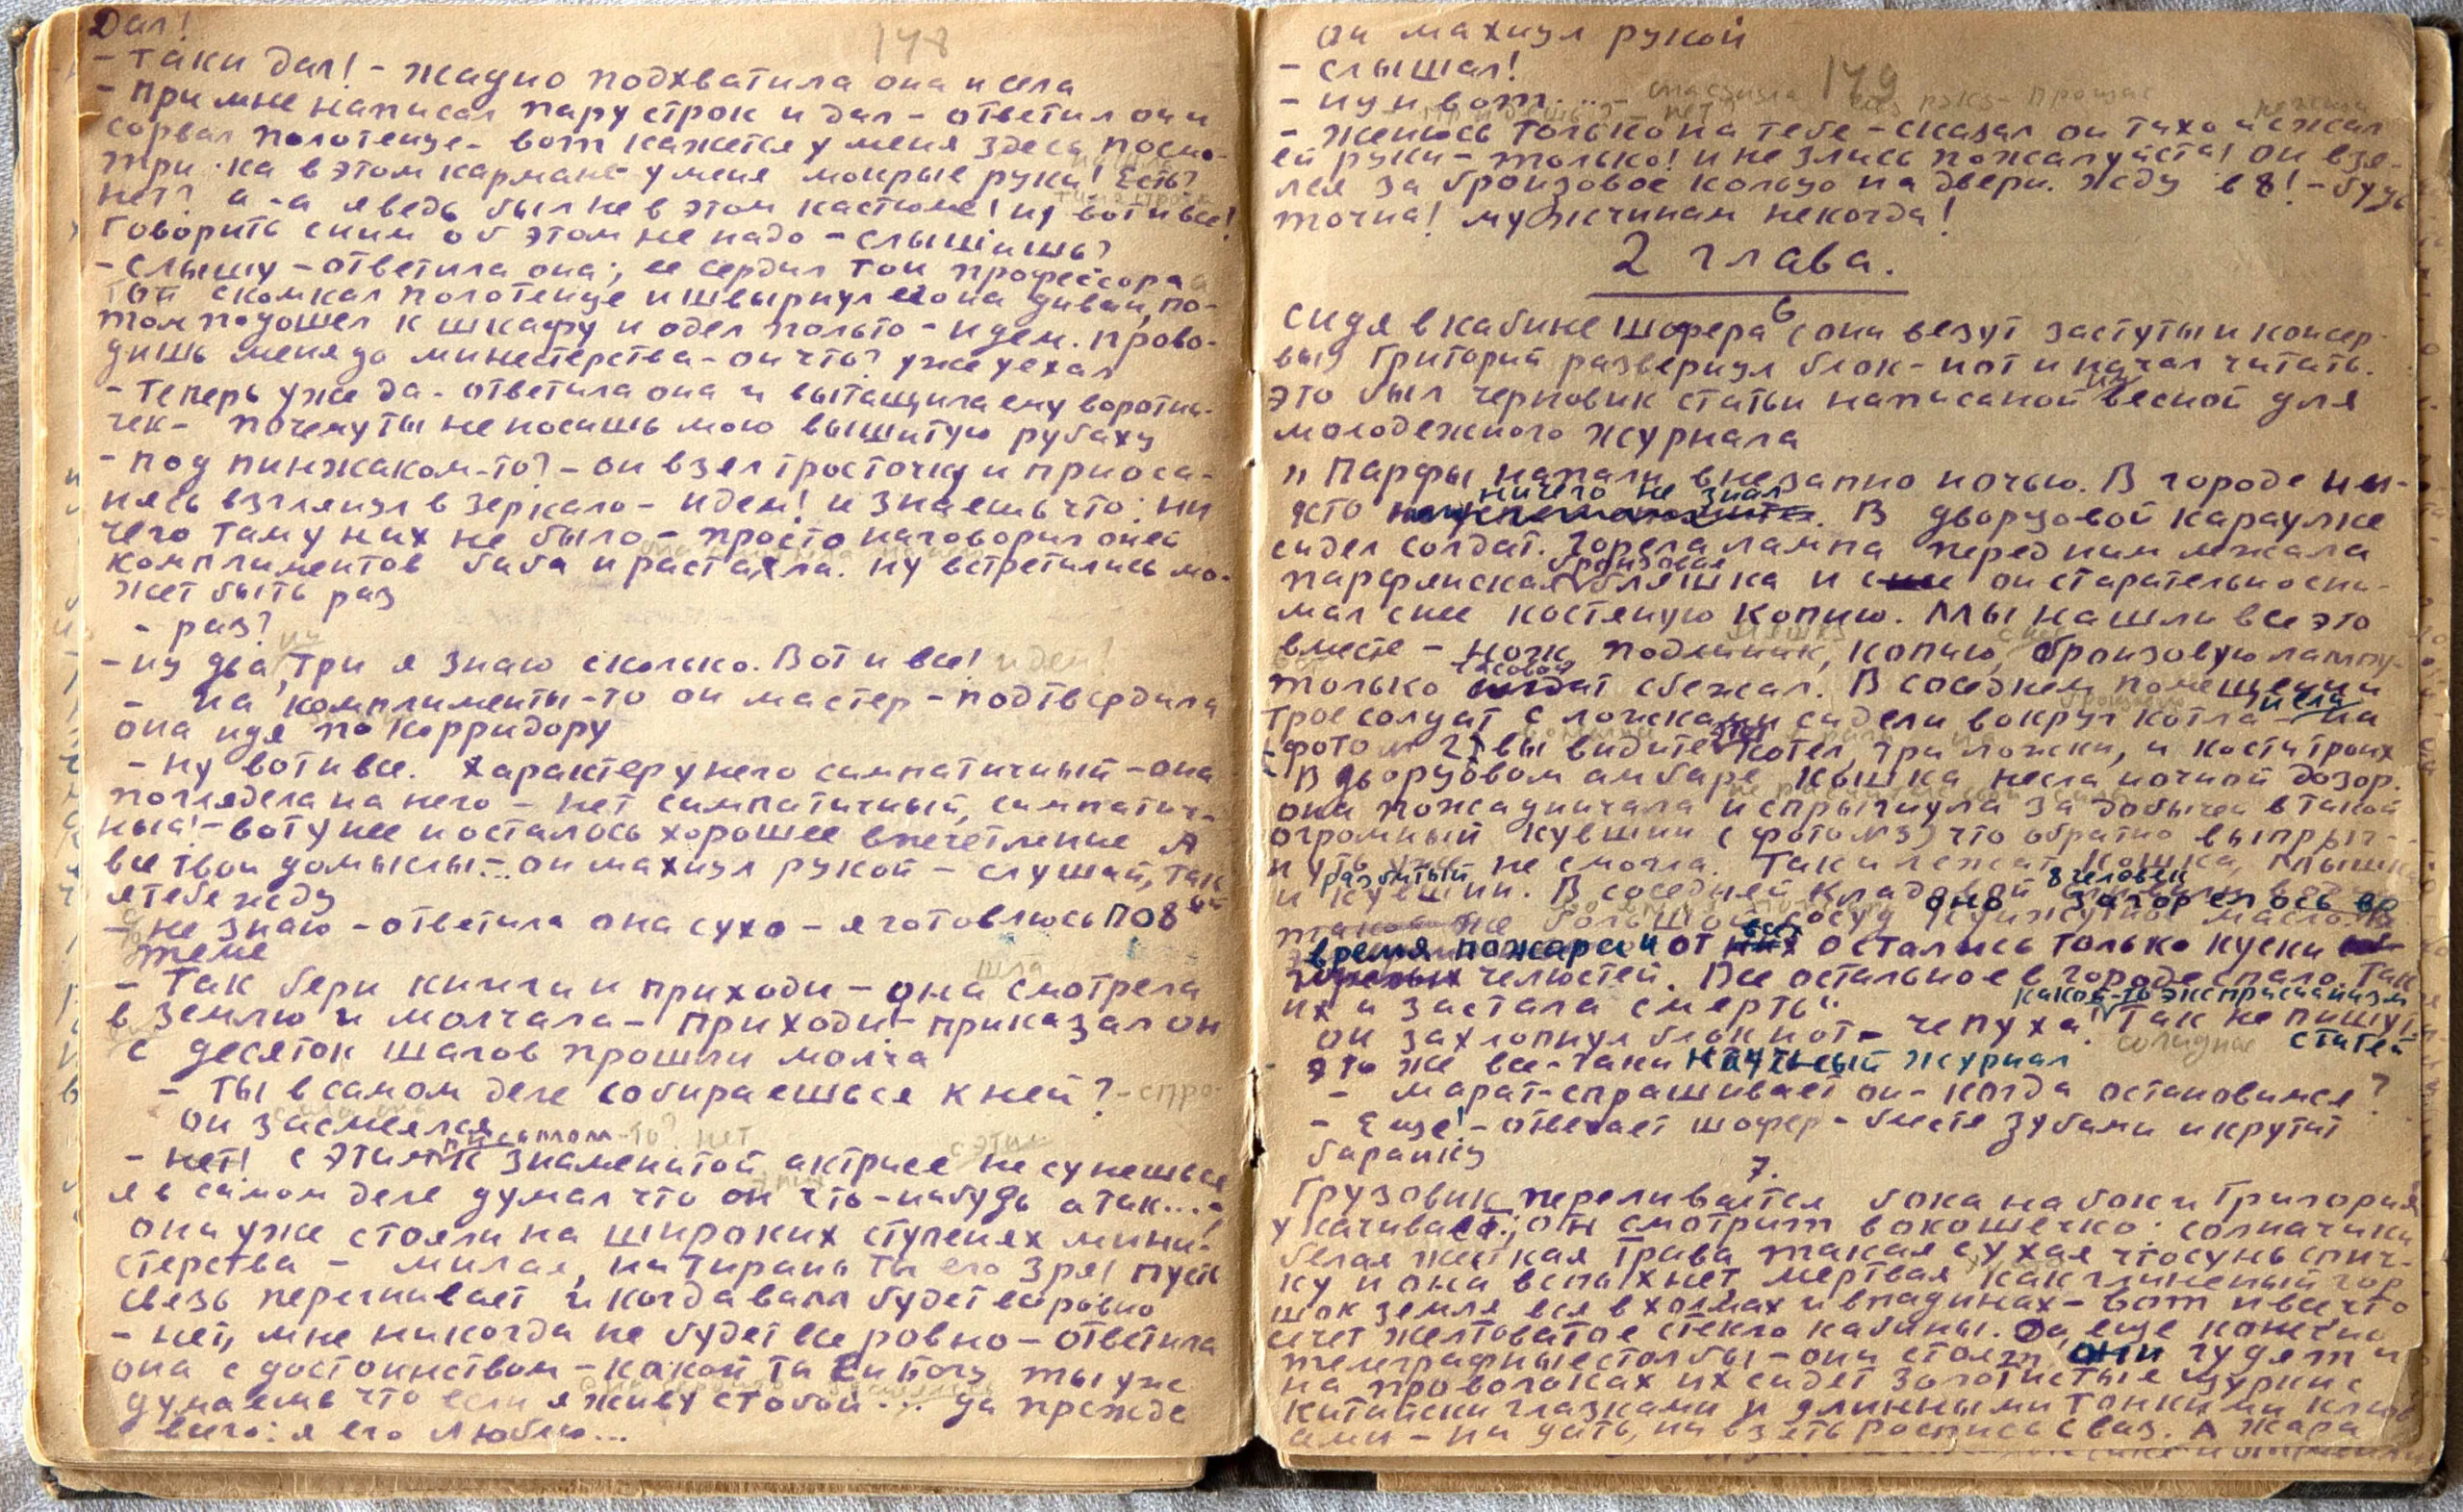 148
Дал!
- Таки дал! - жадно подхватила она и села
- При мне написал пару строк и дал - ответил он и
сорвал полотенце - вот кажется у меня здесь посмо-
три-ка в этом кармане у меня мокрые руки! Есть?
нет? а-а я ведь был не в этом кастюме! ну вот и все!
Говорить с ним об этом не надо - слышишь?
- Слышу - ответила она; ее сердил тон профессора
Тот скомкал полотенце и швырнул его на диван, по-
том подошел к шкафу и одел польто - идем. прово-
дишь меня до министерства - он что? уже уехал
- Теперь уже да - ответила она и вытащила ему воротни-
чек - почему ты не носишь мою вышитую рубаху
- под пинжаком-то? - он взял тросточку и приоса-
нясь взглянул в зеркало - идем! и знаешь что: ни
чего там у них не было - просто наговорил он ей
комплиментов баба и растаяла. ну встретились мо-
жет быть раз
- раз?
- ну два, ну три я знаю сколько. Вот и все! идем!
- на комплименты-то он мастер - подтвердила
она идя по корридору
- ну вот и все. Характер у него симпатичный - она
поглядела на него - нет симпатичный, симпатич-
ный! - вот у нее и осталось хорошее впечетление А
все твои домыслы... он махнул рукой - слушай, так
я тебе жду
- не знаю - ответила она сухо - я готовлюсь по 8-ой
теме
- Так бери книги и приходи - она шла смотрела
в землю и молчала - приходи - приказал он
с десяток шагов прошли молча
- ты в самом деле собираешься к ней? - спро-
он засмеялся
- нет! с этим письмом-то? нет к знаменитой актрисе не сунешься
я в самом деле думал что он что-нибудь а так...
они уже стояли на широких ступенях мини-
стерства - милая, не тирань ты его зря! пусть
свезь перегнивает и когда вам будет все ровно
- нет, мне никогда не будет все ровно - ответила
она с достоинством - какой ты ей богу ты уже
думаешь что если я живу с тобой... да прежде
всего: я его люблю...
149
он махнул рукой
- слышал!
- ну и вот...
- женюсь только на тебе - сказал он тихо и сжал
ей руки - только! и не злись пожалуйста! он взя-
лся за бронзовое кольцо на двери. Жду в 8! - будь
точна! мужчинам некогда!
2 глава.
6
Сидя в кабине шофера (они везут заступы и консер-
вы) Григорий развернул блок-нот и начал читать.
Это был черновик статьи написаной им весной для
молодежного журнала
"Парфы напали внезапно ночью. В городе ни-
кто ничего не знал. В дворцовой караулке
сидел солдат. Горела лампа перед ним лежала
парфянская бронзовая бляшка и он старательно сни-
мал с нее костяную копию. Мы нашли все это
вместе - нож, подлиник, копию, бронзовую лампу
только часовой сбежал. В соседнем помещении
трое солдат с ложками сидели вокруг котла - на
фото № 2) вы видите этот котел, три ложки, и кости троих
В дворцовом амбаре кышка несла ночной дозор.
она пожадничала и спрыгнула за добычей в такой
огромный кувшин (фото №3) что обратно выпрыг-
нуть уже не смогла. Так и лежат кошка, мышка
и разбитый кувшин. В соседней кладовой 8 человек
большой сосуд кунжутное масло. оно загорелось во
время пожара и от всех остались только куски
челюстей. Все остальное в городе спало. Так
их и застала смерть".
он захлопнул блокнот - чепуха! какой-то эксприсианизм Так не пишут
статей
это же все-таки научный журнал
- Марат - спрашивает он - когда остановимся?
- Еще! - отвечает шофер - блестя зубами и крутит
баранку
7.
Грузовик переливается с бока на бок и Григория
укачивает; он смотрит в окошечко: солначики
белая жесткая трава такая сухая что сунь спич-
ку и она вспыхнет мертвая как глиненый гор
шок земля вся в холмах и впадинах - вот и все что
сечет желтоватое стекло кабины. Да, еще конечно
телеграфные столбы - они стоят, они гудят и
на проволоках их сидят золотистые щурки с
китайски глазками и длинными тонкими клюв
ами - ни дать, ни взять роспись с ваз. А жара